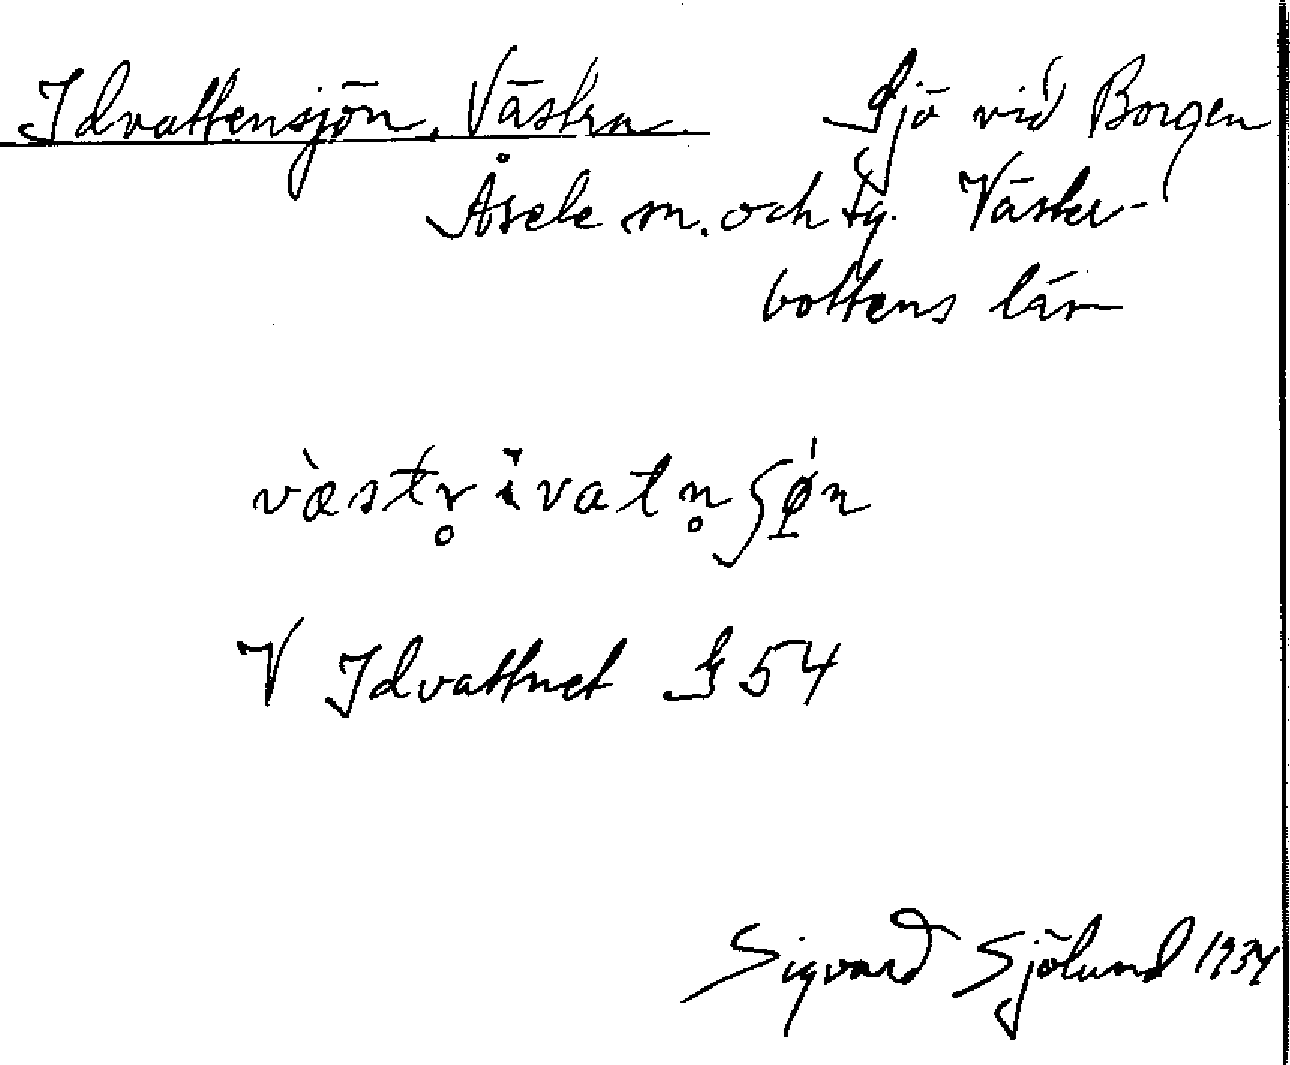 Idvattensjön, Västra Sjö vid Borgen
Åsele sn. och tg. Väster-
bottens län
vὰstr̥ ìvatn̥ʃǿ̱n
V Idvattnet S 54
Sigvard Sjölund 1934